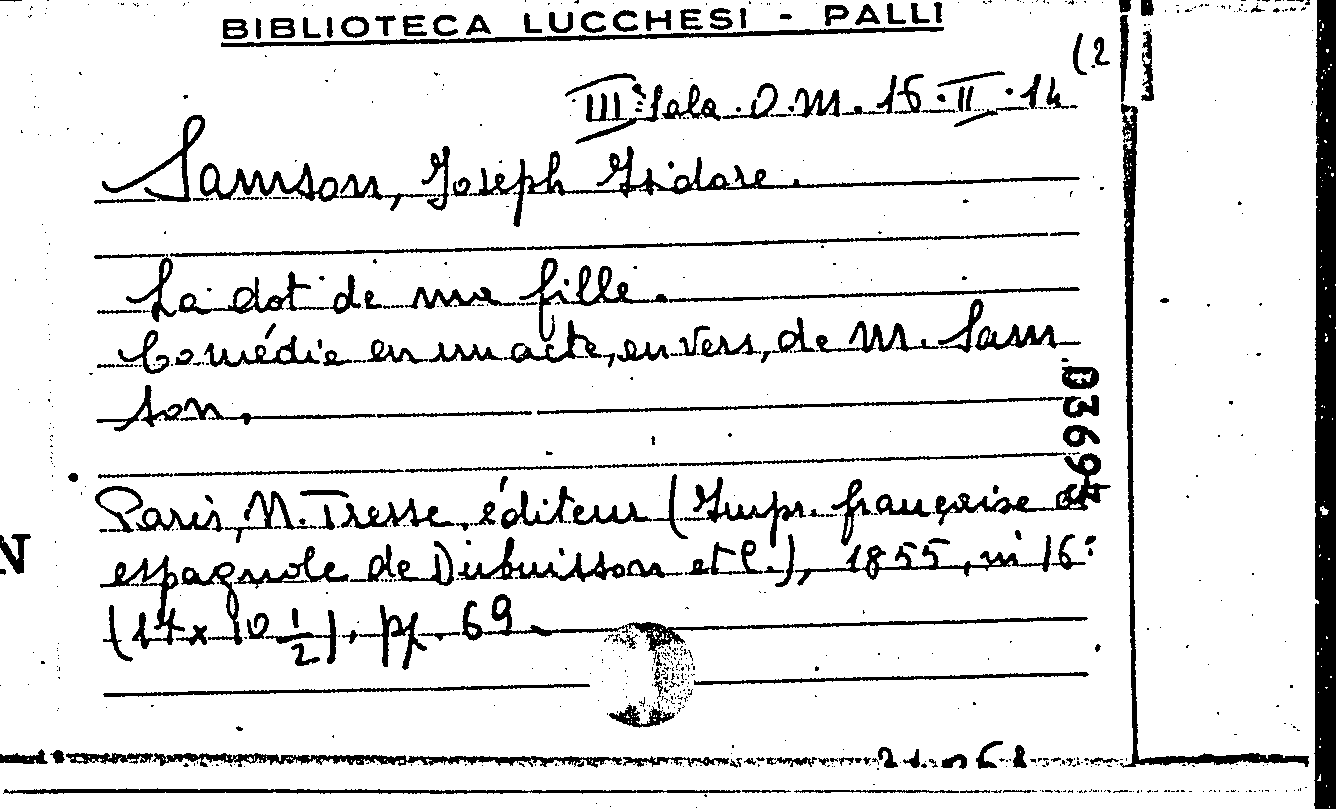 BIBLIOTECA LUCCHESI - PALLI
(2
III Sala. O.M. 16.II.14
Samson, Joseph Isidore.
La dot de ma fille.
Comédie en un acte, en vers, de M. Sam
son.
Paris, N. Tresse, éditeur (Impr. française et
espagnole de Dubuisson et C.), 1855, in 16°
(17 x 10 1/2), pp. 69.